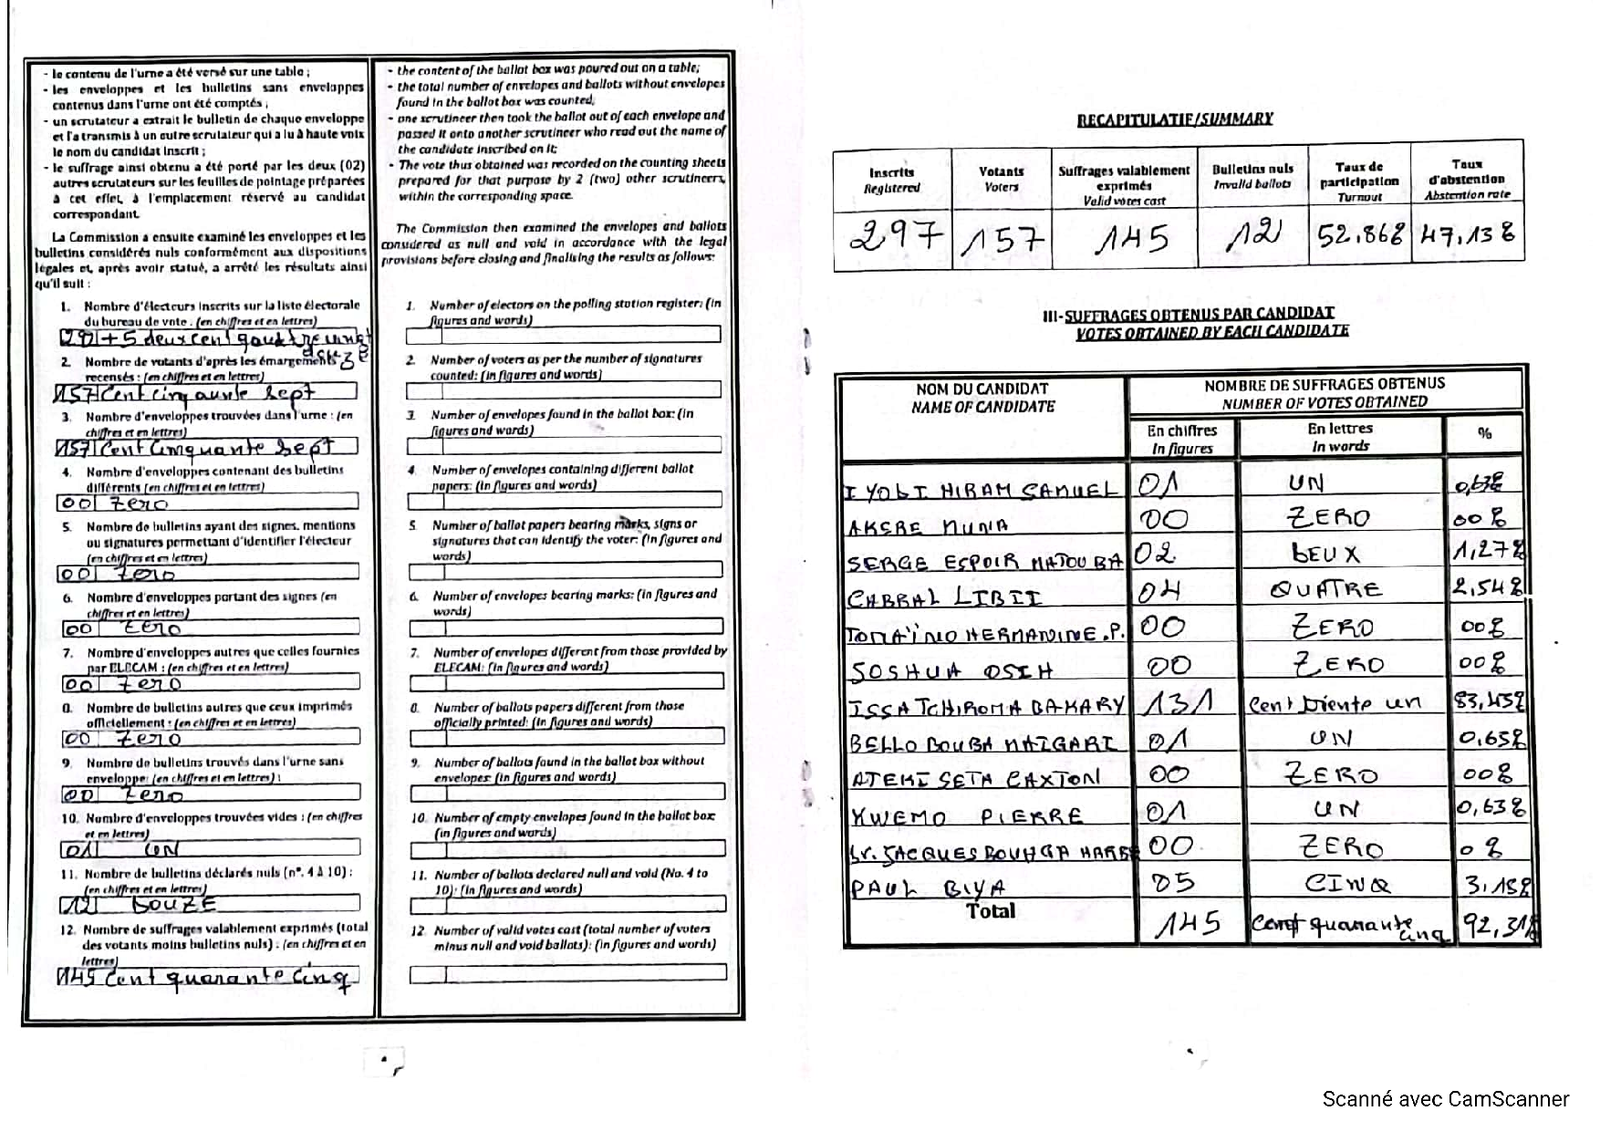 - le contenu de l'urne a été versé sur une table ;
- les enveloppes et les bulletins sans enveloppes
contenus dans l'urne ont été comptés ;
- un scrutateur a extrait le bulletin de chaque enveloppe
et l'a transmis à un autre scrutateur qui a lu à haute voix
le nom du candidat inscrit ;
- le suffrage ainsi obtenu a été porté par les deux (02)
autres scrutateurs sur les feuilles de pointage préparées
à cet effet, à l'emplacement réservé au candidat
correspondant.
La Commission a ensuite examiné les enveloppes et les
bulletins considérés nuls conformément aux dispositions
légales et, après avoir statué, a arrêté les résultats ainsi
qu'il suit :
1. Nombre d'électeurs inscrits sur la liste électorale
du bureau de vote : (en chiffres et en lettres)
292+5 deux cent
2. Nombre de votants d'après les émargements
recensés : (en chiffres et en lettres)
157 Cent cinquante Sept
3. Nombre d'enveloppes trouvées dans l'urne : (en
chiffres et en lettres)
157 Cent Cinquante Sept
4. Nombre d'enveloppes contenant des bulletins
différents (en chiffres et en lettres)
00 Zero
5. Nombre de bulletins ayant des signes, mentions
ou signatures permettant d'identifier l'électeur
(en chiffres et en lettres)
00 Zero
6. Nombre d'enveloppes portant des signes (en
chiffres et en lettres)
00 Zero
7. Nombre d'enveloppes autres que celles fournies
par ELECAM : (en chiffres et en lettres)
00 Zero
8. Nombre de bulletins autres que ceux imprimés
officiellement : (en chiffres et en lettres)
00 Zero
9. Nombre de bulletins trouvés dans l'urne sans
enveloppe: (en chiffres et en lettres) :
00 Zero
10. Nombre d'enveloppes trouvées vides : (en chiffres
et en lettres)
01 UN
11. Nombre de bulletins déclarés nuls (n°. 4 à 10) :
(en chiffres et en lettres)
12 DOUZE
12. Nombre de suffrages valablement exprimés (total
des votants moins bulletins nuls) : (en chiffres et en
lettres)
145 Cent quarante Cinq
- the content of the ballot box was poured out on a table;
- the total number of envelopes and ballots without envelopes
found in the ballot box was counted;
- one scrutineer then took the ballot out of each envelope and
passed it onto another scrutineer who read out the name of
the candidate inscribed on it;
- The vote thus obtained was recorded on the counting sheets
prepared for that purpose by 2 (two) other scrutineers,
within the corresponding space.
The Commission then examined the envelopes and ballots
considered as null and void in accordance with the legal
provisions before closing and finalising the results as follows:
1. Number of electors on the polling station register: (in
figures and words)
2. Number of voters as per the number of signatures
counted: (in figures and words)
3. Number of envelopes found in the ballot box: (in
figures and words)
4. Number of envelopes containing different ballot
papers: (in figures and words)
5. Number of ballot papers bearing marks, signs or
signatures that can identify the voter: (in figures and
words)
6. Number of envelopes bearing marks: (in figures and
words)
7. Number of envelopes different from those provided by
ELECAM: (in figures and words)
8. Number of ballots papers different from those
officially printed: (in figures and words)
9. Number of ballots found in the ballot box without
envelopes: (in figures and words)
10. Number of empty envelopes found in the ballot box:
(in figures and words)
11. Number of ballots declared null and void (No. 4 to
10): (in figures and words)
12. Number of valid votes cast (total number of voters
minus null and void ballots): (in figures and words)
RECAPITULATIF/SUMMARY
Inscrits Registered Votants Voters Suffrages valablement exprimés Valid votes cast Bulletins nuls Invalid ballots Taux de participation Turnout Taux d'abstention Abstention rate
297 157 145 12 52.86% 47,13%
III-SUFFRAGES OBTENUS PAR CANDIDAT
VOTES OBTAINED BY EACH CANDIDATE
NOM DU CANDIDAT NOMBRE DE SUFFRAGES OBTENUS
NAME OF CANDIDATE NUMBER OF VOTES OBTAINED
En chiffres En lettres %
In figures In words
IYODI HIRAM SAMUEL 01 UN 0,63%
AKERE MUNA 00 ZERO 00%
SERGE ESPOIR MATOUBA 02 DEUX 1,27%
CABRAL LIBII 04 QUATRE 2,54%
TOMAÏNO HERMANINE.P. 00 ZERO 00%
SOSHUA OSIH 00 ZERO 00%
ISSA TCHIROMA BAKARY 131 Cent Trente un 83,43%
BELLO BOUBA MAIGARI 01 UN 0,65%
ATEKI SETA CAXTON 00 ZERO 00%
KWEMO PIERRE 01 UN 0,63%
Dr. JACQUES BOUHGA HARB 00 ZERO 0%
PAUL BIYA 05 CINQ 3.18%
Total 145 Cent quarante cinq 92,31%
Scanné avec CamScanner